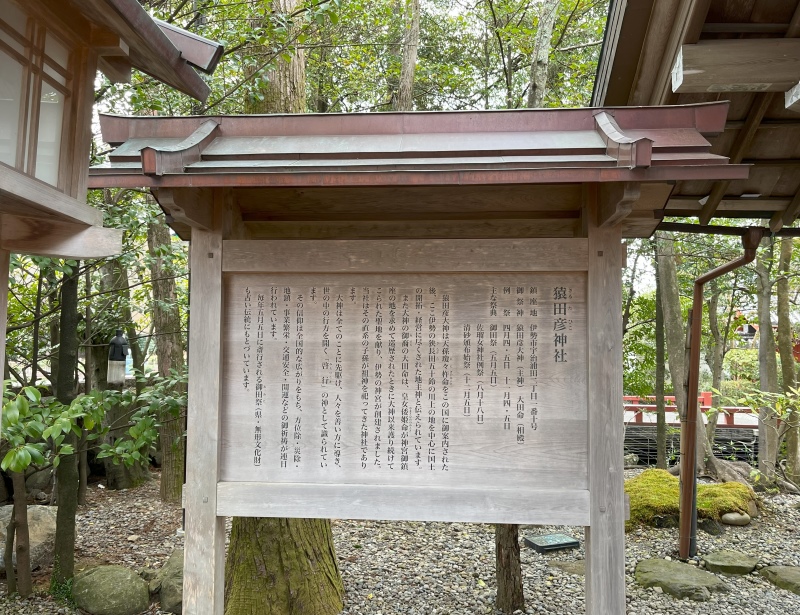 猿田彦神社
さるたひこ
鎮座地 伊勢市宇治浦田二丁目一番十号
御祭神 猿田彦大神（主神） 大田命（相殿）
例祭 四月四・五日 十一月四・五日
主な祭典 御田祭（五月五日）
佐瑠女神社例祭（八月十八日）
清砂頒布始祭（十二月五日）
猿田彦大神は天孫瓊々杵命をこの国に御案内された
後、この伊勢の狭長田五十鈴の川上の地を中心に国土
の開拓・経営に尽くされた地主神と伝えられています。
また大神の御裔の大田命は、皇女倭姫命が神宮御鎮
座の地を求めて巡歴されたときに大神以来護り続けて
こられた聖地を献り、伊勢の神宮が創建されました。
当社はその直系の子孫が祖神を祀ってきた神社であり
ます。
大神は全てのことに先駆け、人々を善い方に導き、
世の中の行方を開く、“啓行”の神として識られてい
ます。
その信仰は全国的な広がりをもち、方位除・災除・
地鎮・事業繁栄・交通安全・開運などの御祈祷が連日
行われています。
毎年五月五日に斎行される御田祭（県・無形文化財）
も古い伝統にもとづいています。